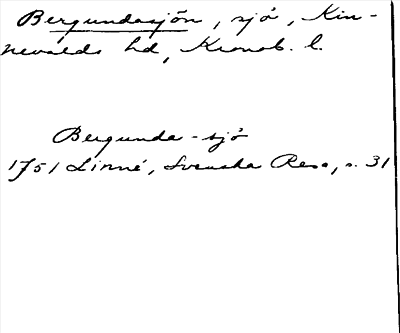 Bergundasjön, sjö, Kin-
nevalds hd, Kronob. l.
Bergunda-sjö
1751 Linné, Svenska Resa, s. 31